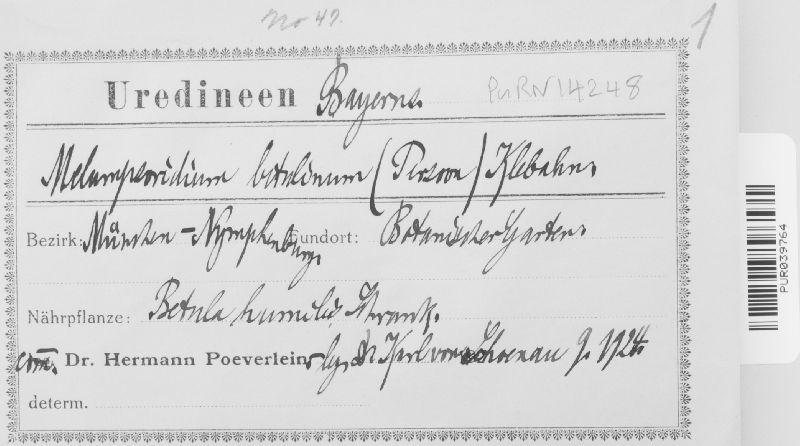 No 47.
1
Uredineen Bayerns.
PURN14248
Melampsoridium betulinum (Persoon) Klebahn.
Bezirk: München-Nymphenburg. Fundort: Botanischer Garten.
Nährpflanze: Betula humilis Schrank.
com. Dr. Hermann Poeverlein, lg. Dr Karl von Schoenau 9. 1924.
determ.
PUR039764